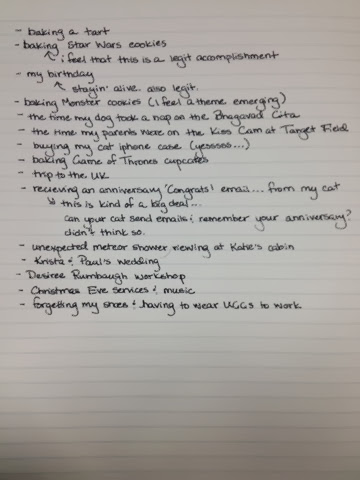 - baking a tart
- baking Star Wars cookies
i feel that this is a legit accomplishment
- my birthday
stayin' alive. also legit.
- baking Monster cookies (i feel a theme emerging)
- the time my dog took a nap on the Bhagavad Gita
- the time my parents were on the Kiss Cam at Target Field
- buying my cat iphone case (yesssss...)
- baking Game of Thrones cupcakes
- trip to the UK
- recieving an anniversary 'Congrats!' email... from my cat
this is kind of a big deal...
can your cat send emails & remember your anniversary?
didn't think so.
- unexpected meteor shower viewing at Katie's cabin
- Krista & Paul's wedding
- Desiree Rumbaugh workshop
- Christmas Eve services & music
- forgetting my shoes & having to wear UGGs to work